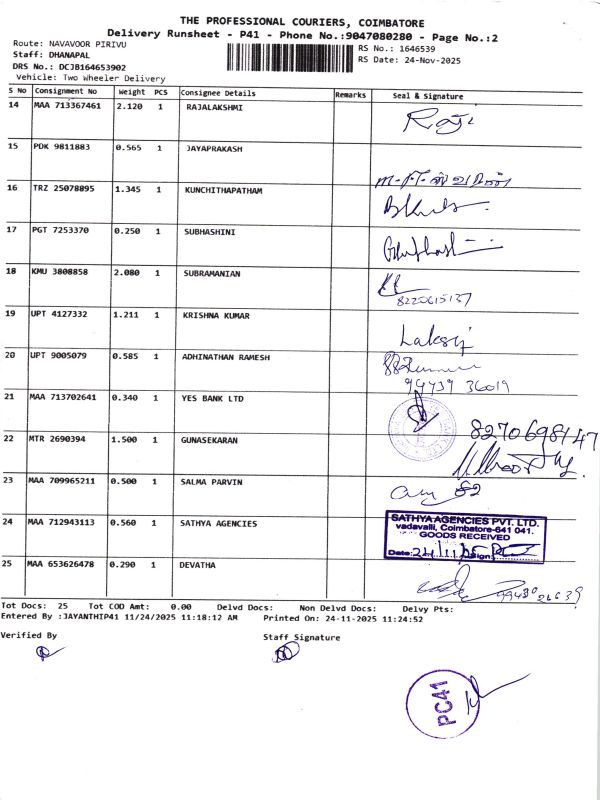 THE PROFESSIONAL COURIERS, COIMBATORE
Delivery Runsheet - P41 - Phone No.:9047080280 - Page No.:2
Route: NAVAVOOR PIRIVU
RS No.: 1646539
Staff: DHANAPAL
RS Date: 24-Nov-2025
DRS No.: DCJB164653902
Vehicle: Two Wheeler Delivery
S No Consignment No Weight PCS Consignee Details Remarks Seal & Signature
14 MAA 713367461 2.120 1 RAJALAKSHMI
15 PDK 9811883 0.565 1 JAYAPRAKASH
16 TRZ 25078895 1.345 1 KUNCHITHAPATHAM
17 PGT 7253370 0.250 1 SUBHASHINI
18 KMU 3808858 2.080 1 SUBRAMANIAN
8220615137
19 UPT 4127332 1.211 1 KRISHNA KUMAR
20 UPT 9005079 0.585 1 ADHINATHAN RAMESH
94439 36019
21 MAA 713702641 0.340 1 YES BANK LTD
8270698147
22 MTR 2690394 1.500 1 GUNASEKARAN
23 MAA 709965211 0.500 1 SALMA PARVIN
24 MAA 712943113 0.560 1 SATHYA AGENCIES
SATHYA AGENCIES PVT. LTD.
vadavalli, Coimbatore-641 041.
GOODS RECEIVED
Date: 24/11/25 Sign:
25 MAA 653626478 0.290 1 DEVATHA
Tot Docs: 25 Tot COD Amt: 0.00 Delvd Docs: Non Delvd Docs: Delvy Pts:
Entered By :JAYANTHIP41 11/24/2025 11:18:12 AM Printed On: 24-11-2025 11:24:52
Verified By Staff Signature
PC41